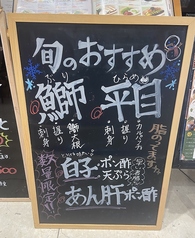 旬のおすすめ
ぶり
鰤
ひらめ
平目
刺身
握り
鰤大根
刺身
握り
カルパッチョ
脂のってます
数量限定!!
白子
ポン酢
天ぷら
あん肝ポン酢